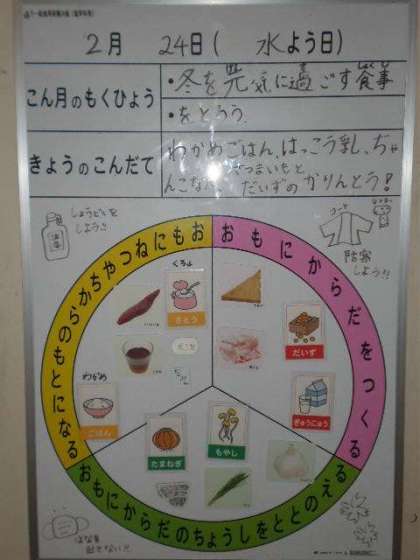 2月 24日( 水よう日)
こん月のもくひょう
・冬を元気に過ごす食事
・をとろう。
きょうのこんだて
わかめごはん、はっこう乳、ちゃ
んこなべ、さつまいもと
だいずのかりんとう!
しょうどくを
しよう!!
コート
防寒
しよう!!
おもにねつやちからのもとになる
おもにからだをつくる
おもにからだのちょうしをととのえる
くろ
さとう
だいず
わかめ
ごはん
ぎゅうにゅう
たまねぎ
もやし
はなを
出さない!!